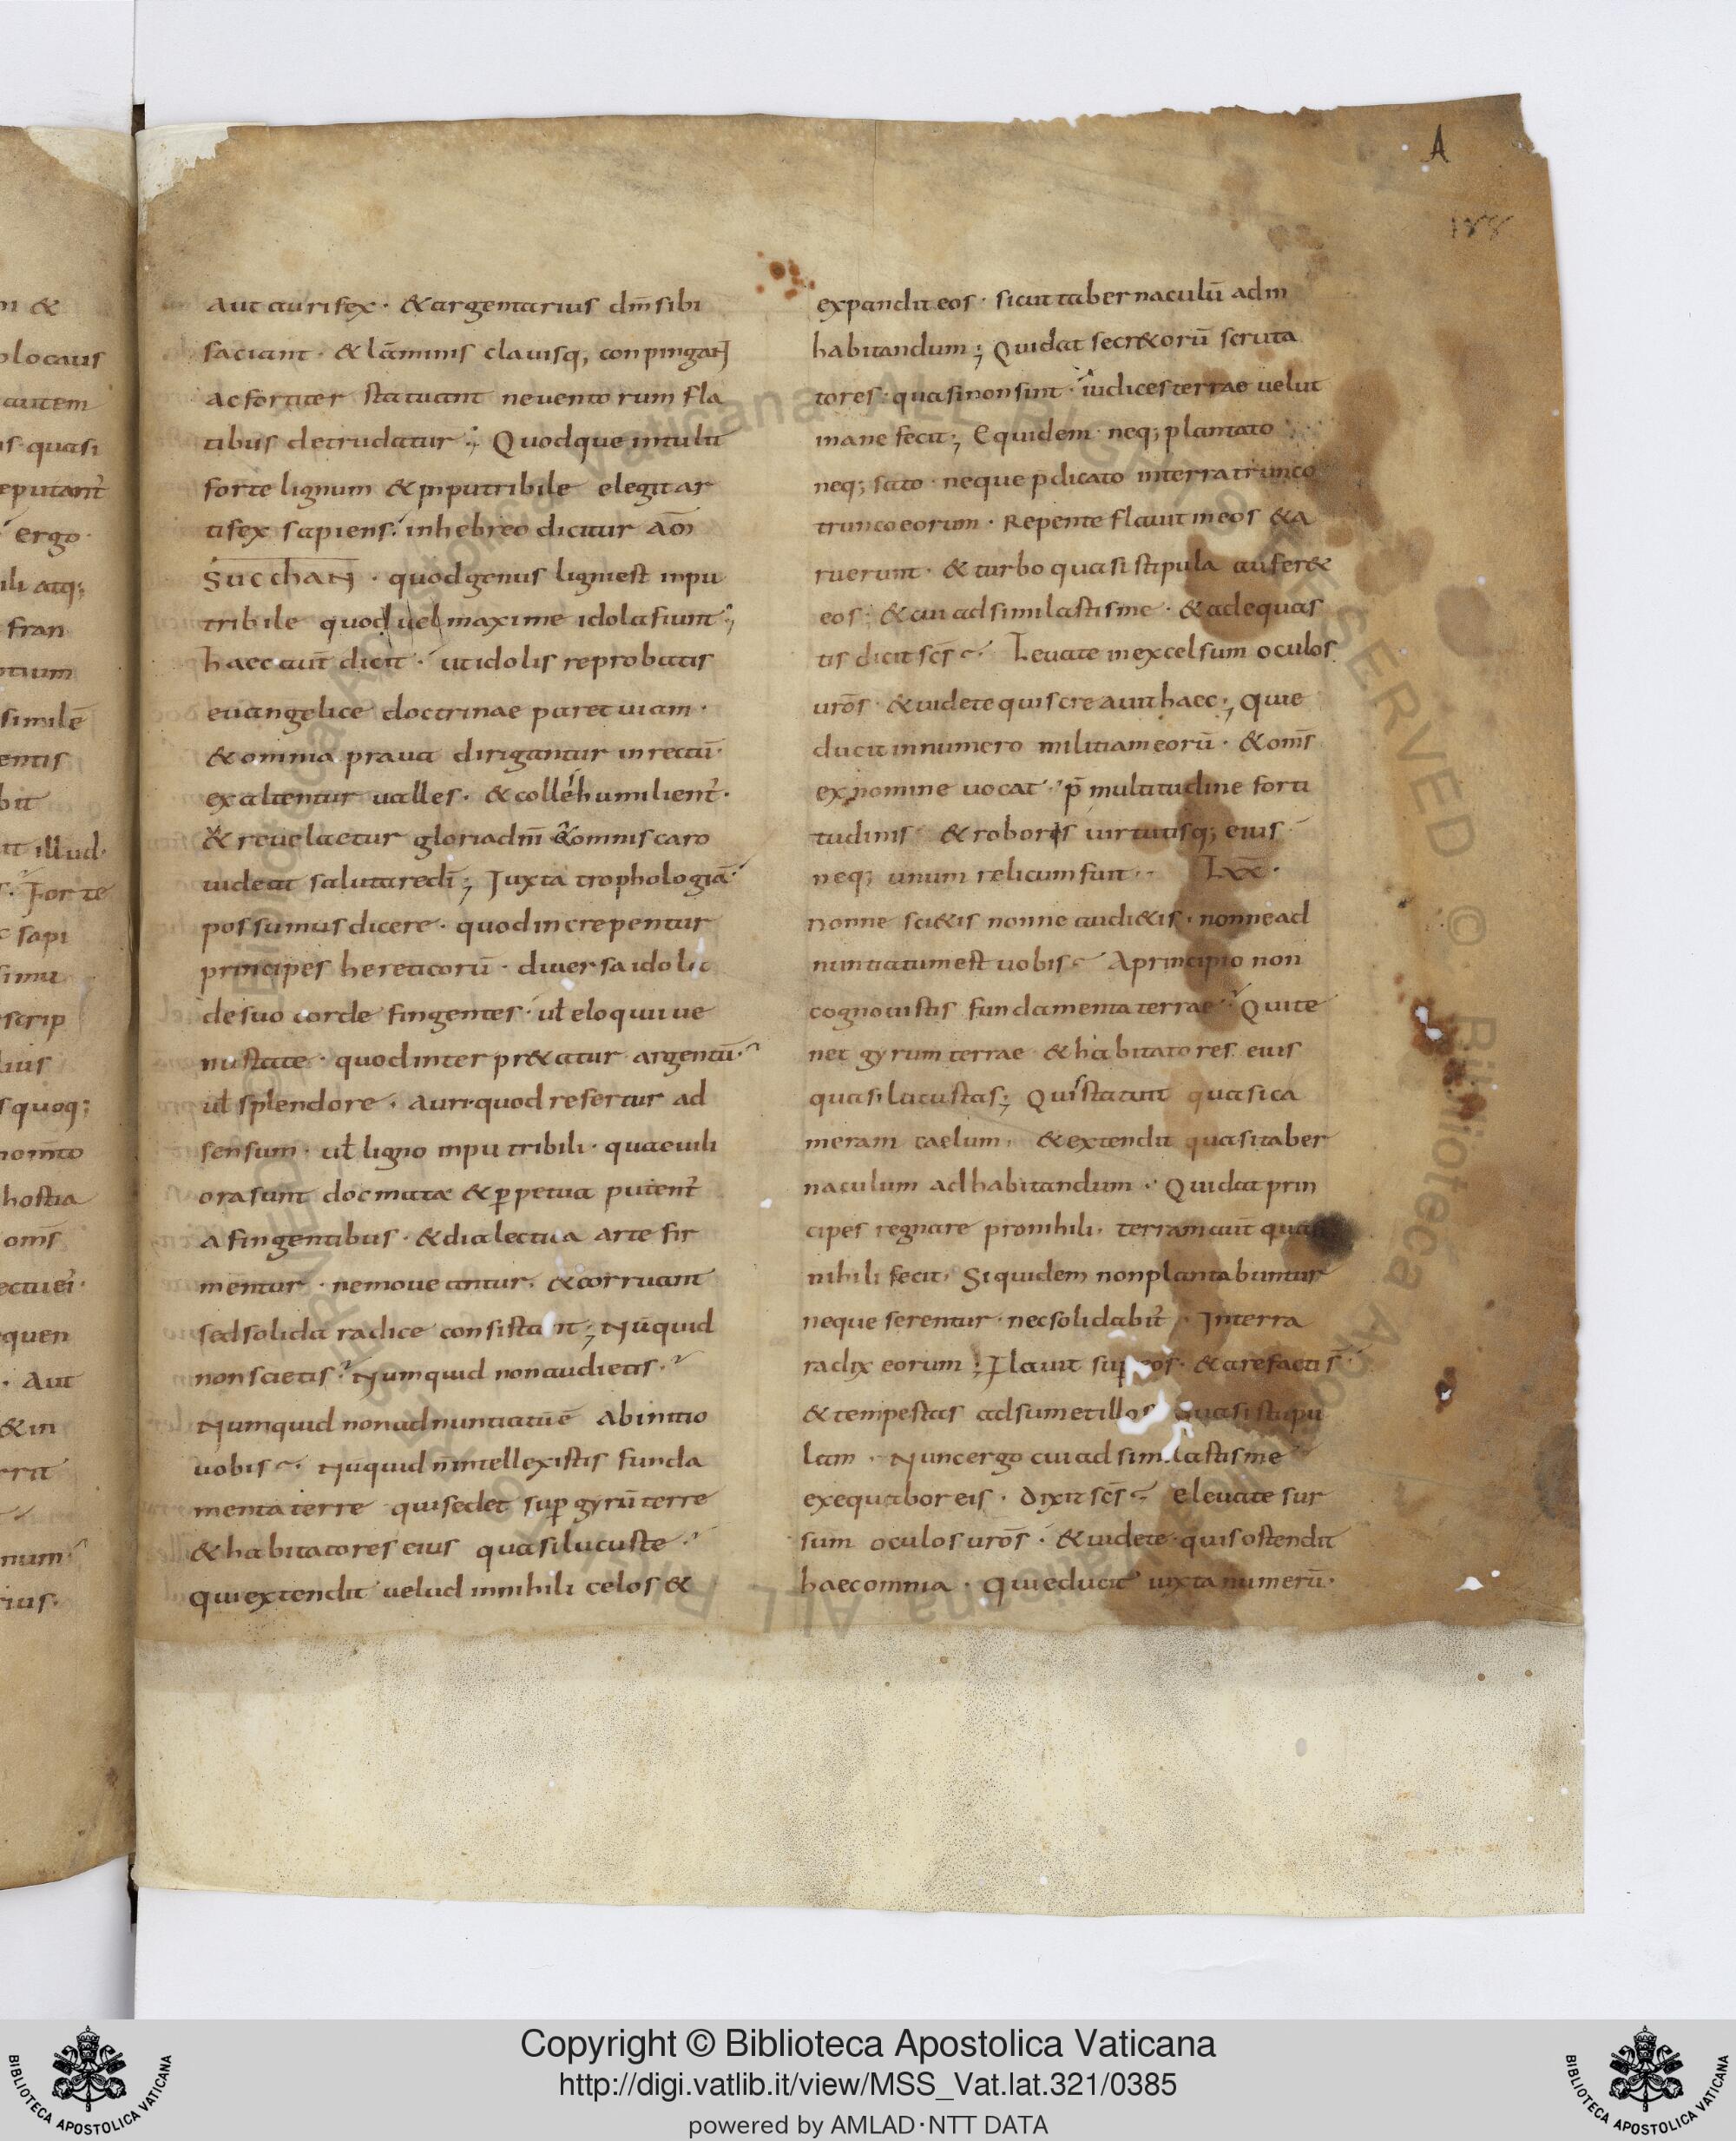 A
188
aut aurifex · & argentarius dm̄ sibi
faciant · & lāminis clauisq; conpingat̄
ac fortiter statuant ne uentorum fla
tibus detrudatur ; Quodque intulit
forte lignum & inputribile elegit ar
tifex sapiens · in hebreo dicitur
succhan · quod genus ligni est inpu
tribile quod uel maxime idola fiunt ;
haec aut̄ dicit · ut idolis reprobatis
euangelice doctrinae paret uiam ·
& omnia praua dirigantur in rectū ·
exaltentur ualles · & colles humilient̄ ·
& reueletur gloria dm̄ & omnis caro
uideat salutare dī ; Juxta trophologiā
possumus dicere · quod increpentur
principes hereticorū · diuersa idola
de suo corde fingentes · ul̄ eloquii ue
nustate · quod interpr&atur argentū ·
ul̄ splendore · auri · quod refertur ad
sensum · ul̄ ligno inputribili · quae uili
ora sunt docmatæ & ꝑpetua putent̄
a fingentibus · & dialectica arte fir
mentur · ne moueantur · & corruant
sed solida radice consistant ; Nūquid
non scietis · Numquid non audietis ·
Numquid non adnuntiatū ē ab initio
uobis · Nūquid n̄ intellexistis funda
menta terre qui sedet suꝑ gyrū terre
& habitatores eius quasi lucuste ·
qui extendit uelud in nihili celos &
expandit eos · sicut tabernaculū ad in
habitandum ; Qui dat secr&orū scruta
tores · quasi non sint · iudices terrae uelut
inane fecit ; Equidem · neq; plantato
neq; sato · neque p̄dicato in terra trunco
trunco eorum · Repente flauit in eos & a
ruerunt · & turbo quasi stipula aufer&
eos · & cui adsimilastis me · & adequas
tis dicit sc̄s · Leuate in excelsum oculos
urōs · & uidete quis creauit haec ; Qui e
ducit in numero militiam eorū · & om̄s
ex nomine uocat · p̄ multitudine forti
tudinis · & roboris uirtutisq; eius
neq; unum relicum fuit · Lxx ·
Nonne sci&is nonne audi&is · nonne ad
nuntiatum est uobis · A principio non
cognouistis fundamenta terrae · Qui te
net gyrum terrae & habitatores eius
quasi lucustas ; Qui statuit quasi ca
meram caelum · & extendit quasi taber
naculum ad habitandum · Qui dat prin
cipes regnare pro nihili · terram aut̄ quasi
nihili fecit · Siquidem non plantabuntur
neque serentur · nec solidabit̄ · In terra
radix eorum ; Flauit suꝑ eos · & arefacti s̄ ·
& tempestas adsumet illos quasi stipu
lam · Nunc ergo cui adsimilastis me
exequabor eis · dixit sc̄s · eleuate sur
sum oculos urōs · & uidete · quis ostendit
haec omnia · Qui educit iuxta numerū ·
ni &
olocaus
autem
us · quasi
eputant̄
ergo ·
ili atq;
fran
simile
entis
bit
illud ·
Forte
sapi
simu
scrip
quoq;
hostia
om̄s
equen
· Aut
& in
num
rius ·
Copyright © Biblioteca Apostolica Vaticana
http://digi.vatlib.it/view/MSS_Vat.lat.321/0385
powered by AMLAD·NTT DATA
BIBLIOTECA APOSTOLICA VATICANA
BIBLIOTECA APOSTOLICA VATICANA